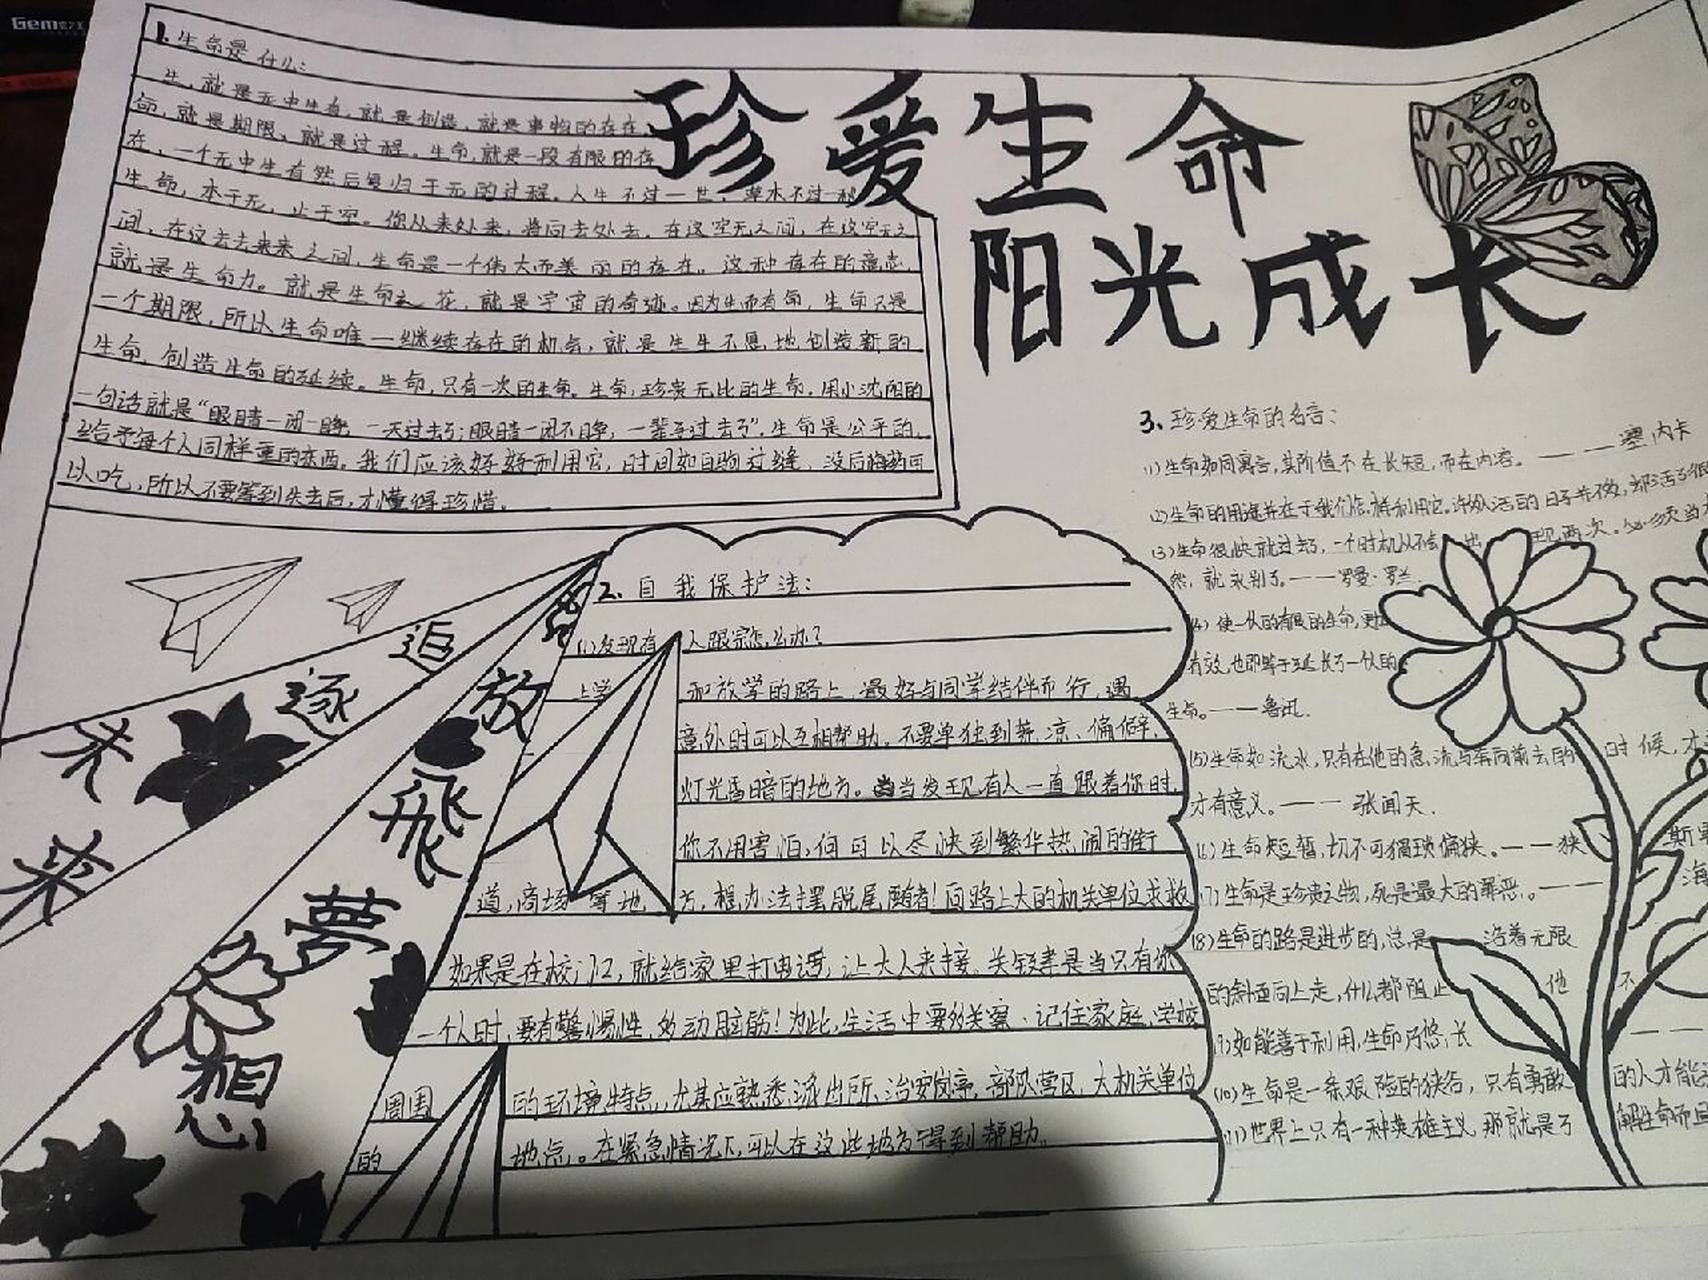 珍爱生命
阳光成长
1.生命是什么:
生,就是无中生有,就是创造,就是事物的存在
命,就是期限,就是过程。生命,就是一段有限的存
在,一个无中生有然后复归于无的过程。人生不过一世,草木不过一秋
生命,本于无,止于空。你从来处来,将向去处去,在这空无之间,在这空无之
间,在这去去来来之间,生命是一个伟大而美丽的存在。这种存在的意志,
就是生命力。就是生命之花,就是宇宙的奇迹。因为生而有命,生命只是
一个期限,所以生命唯一继续存在的机会,就是生生不息地创造新的
生命,创造生命的延续。生命,只有一次的生命。生命,珍贵无比的生命,用小沈阳的
一句话就是“眼睛一闭一睁,一天过去了;眼睛一闭不睁,一辈子过去了”。生命是公平的,
给予每个人同样重的东西。我们应该好好利用它,时间如白驹过隙,没后悔药可
以吃,所以不要等到失去后,才懂得珍惜。
追逐未来
放飛夢想
2.自我保护法:
(1)发现有人跟踪怎么办?
上学和放学的路上,最好与同学结伴而行,遇
意外时可以互相帮助。不要单独到荒凉、偏僻、
灯光昏暗的地方。当发现有人一直跟着你时,
你不用害怕,但可以尽快到繁华热闹的街
道,商场等地方,想办法摆脱尾随者!向路上大的机关单位求救
如果是在校门口,就给家里打电话,让大人来接。关键是当只有你
一个人时,要有警惕性,多动脑筋!为此,生活中要多观察、记住家庭、学校
周围的环境特点,尤其应熟悉派出所、治安岗亭、部队营区、大机关单位
的地点。在紧急情况下,可以在这些地方得到帮助。
3、珍爱生命的名言:
(1)生命如同寓言,其价值不在长短,而在内容。——塞内卡
(2)生命的用途并在于我们怎样利用它。许多人活的日子并不多,却活了很
(3)生命很快就过去了,一个时机从不会出现两次。必须当
然,就永别了。——罗曼·罗兰
(4)使一个人的有限的生命,更加
有效,也即等于延长了一个人的
生命。——鲁迅.
(5)生命如流水,只有在他的急流与奔向前去的时候,才
才有意义。——张闻天.
(6)生命短暂,切不可猥琐偏狭。——狭斯
(7)生命是珍贵之物,死是最大的罪恶。——海
(8)生命的路是进步的,总是沿着无限
的斜面向上走,什么都阻止他不
(9)如能善于利用,生命乃悠长
(10)生命是一条艰险的狭谷,只有勇敢的人才能
(11)世界上只有一种英雄主义,那就是了解生命而且